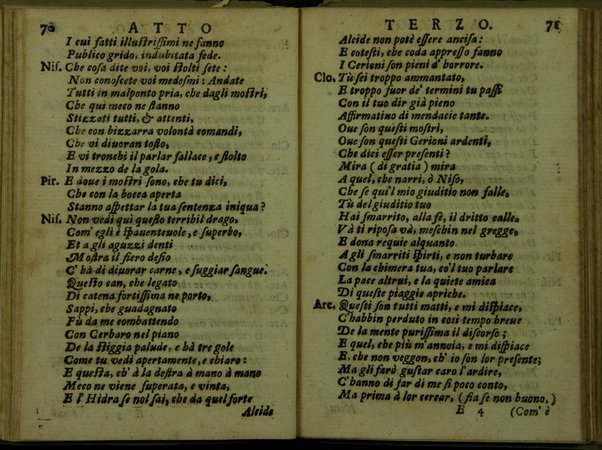 70 ATTO
I cui fatti illustrissimi ne fanno
Publico grido, indubitata fede.
Nis. Che cosa dite voi, voi stolti sete:
Non conoscete voi medesmi: Andate
Tutti in malponto pria, che dagli mostri,
Che qui meco ne stanno
Stizzati tutti, & attenti,
Che con bizzarra volontà comandi,
Che vi diuoran tosto,
E vi tronchi il parlar fallace, e stolto
In mezzo de la gola.
Pir. E doue i mostri sono, che tu dici,
Che con la bocca aperta
Stanno aspettar la tua sentenza iniqua?
Nis. Non vedi quì questo terribil drago,
Com' egli è spauenteuole, e superbo,
Et a gli aguzzi denti
Mostra il fiero desio
C' hà di diuorar carne, e suggiar sangue?
Questo can, che legato
Di catena fortissima ne porto,
Sappi, che guadagnato
Fù da me combattendo
Con Gerbaro nel piano
De la stiggia palude, e hà tre gole
Come tu vedi apertamente, e chiaro:
E questa, ch' à la destra à mano à mano
Meco ne viene superata, e vinta,
E l' Hidra se nol sai, che da quel forte
Alcide
TERZO. 71
Alcide non potè essere ancisa:
E cotesti, che coda appresso fanno
I Gerioni son pieni d' horrore.
Clo. Tù sei troppo ammantato,
E troppo fuor de' termini tu passi
Con il tuo dir già pieno
Affirmatiuo di mendacie tante.
Oue son questi mostri,
Oue son questi Gerioni ardenti,
Che dici esser presenti?
Mira (di gratia) mira
A quel, che narri, ò Niso,
Che se qui'l mio giuditio non falle,
Tù del giuditio tuo
Hai smarrito, alla fè, il dritto calle.
Và ti riposa và, meschin nel gregge,
E dona requie alquanto
A gli smarriti spirti, e non turbare
Con la chimera tua, co'l tuo parlare
La pace altrui, e la quiete amica
Di queste piaggie apriche.
Arc. Questi son tutti matti, e mi dispiace,
C'habbin perduto in cosi tempo breue
De la mente purissima il discorso;
E quel, che più m'annoia, e mi dispiace
E, che non veggon, ch' io son lor presente;
Ma gli farò gustar caro l'ardire,
C'hanno di far di me sì poco conto,
Ma prima à lor cercar, (sia se non buono,)
E 4 (Com' è